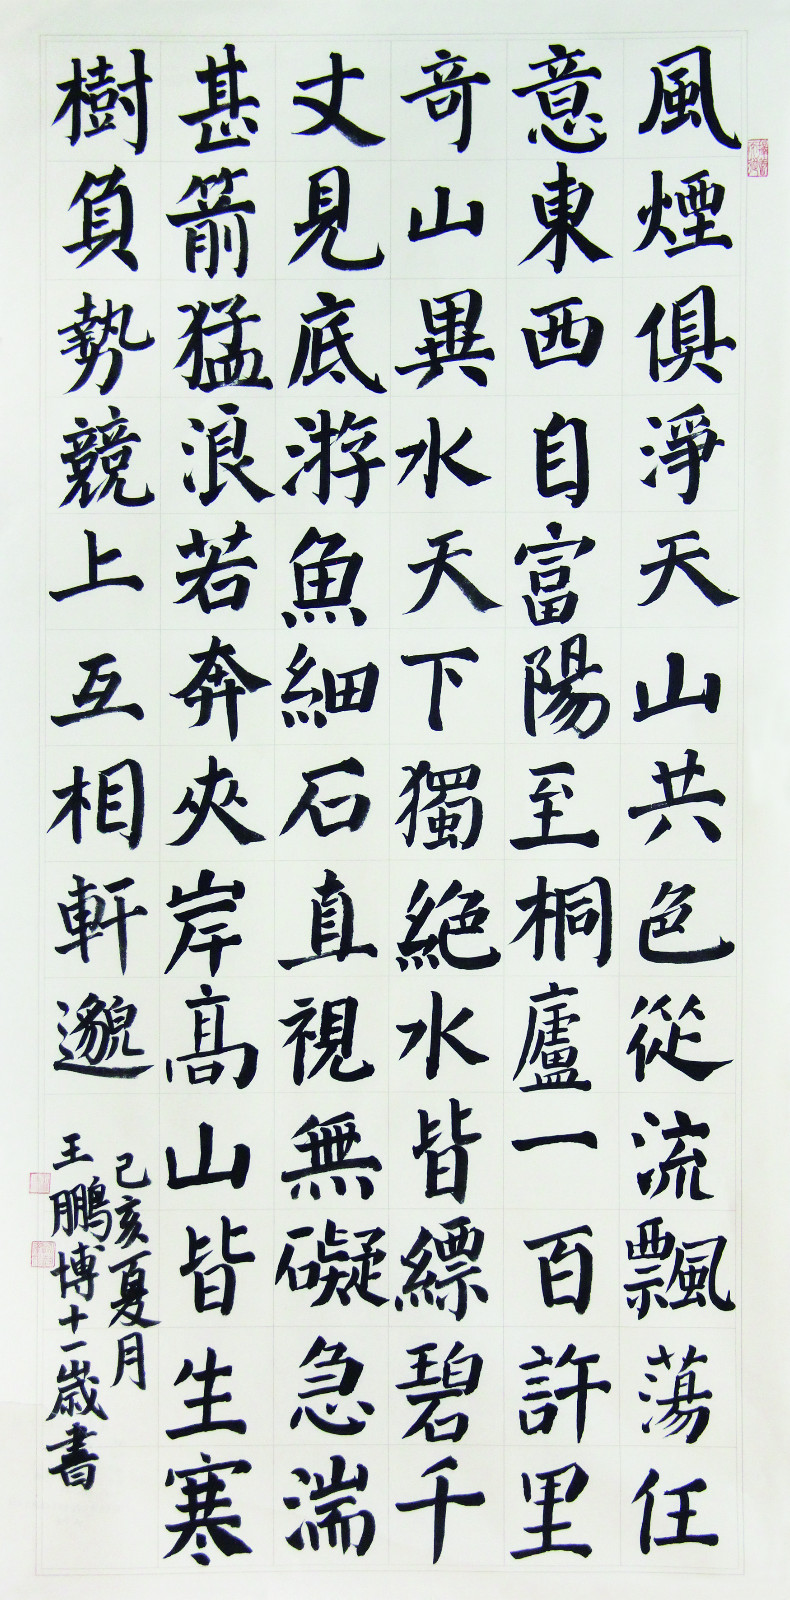 風煙俱淨天山共色從流飄蕩任
意東西自富陽至桐廬一百許里
奇山異水天下獨絕水皆縹碧千
丈見底游魚細石直視無礙急湍
甚箭猛浪若奔夾岸高山皆生寒
樹負勢競上互相軒邈
己亥夏月
王鵬博十一歲書